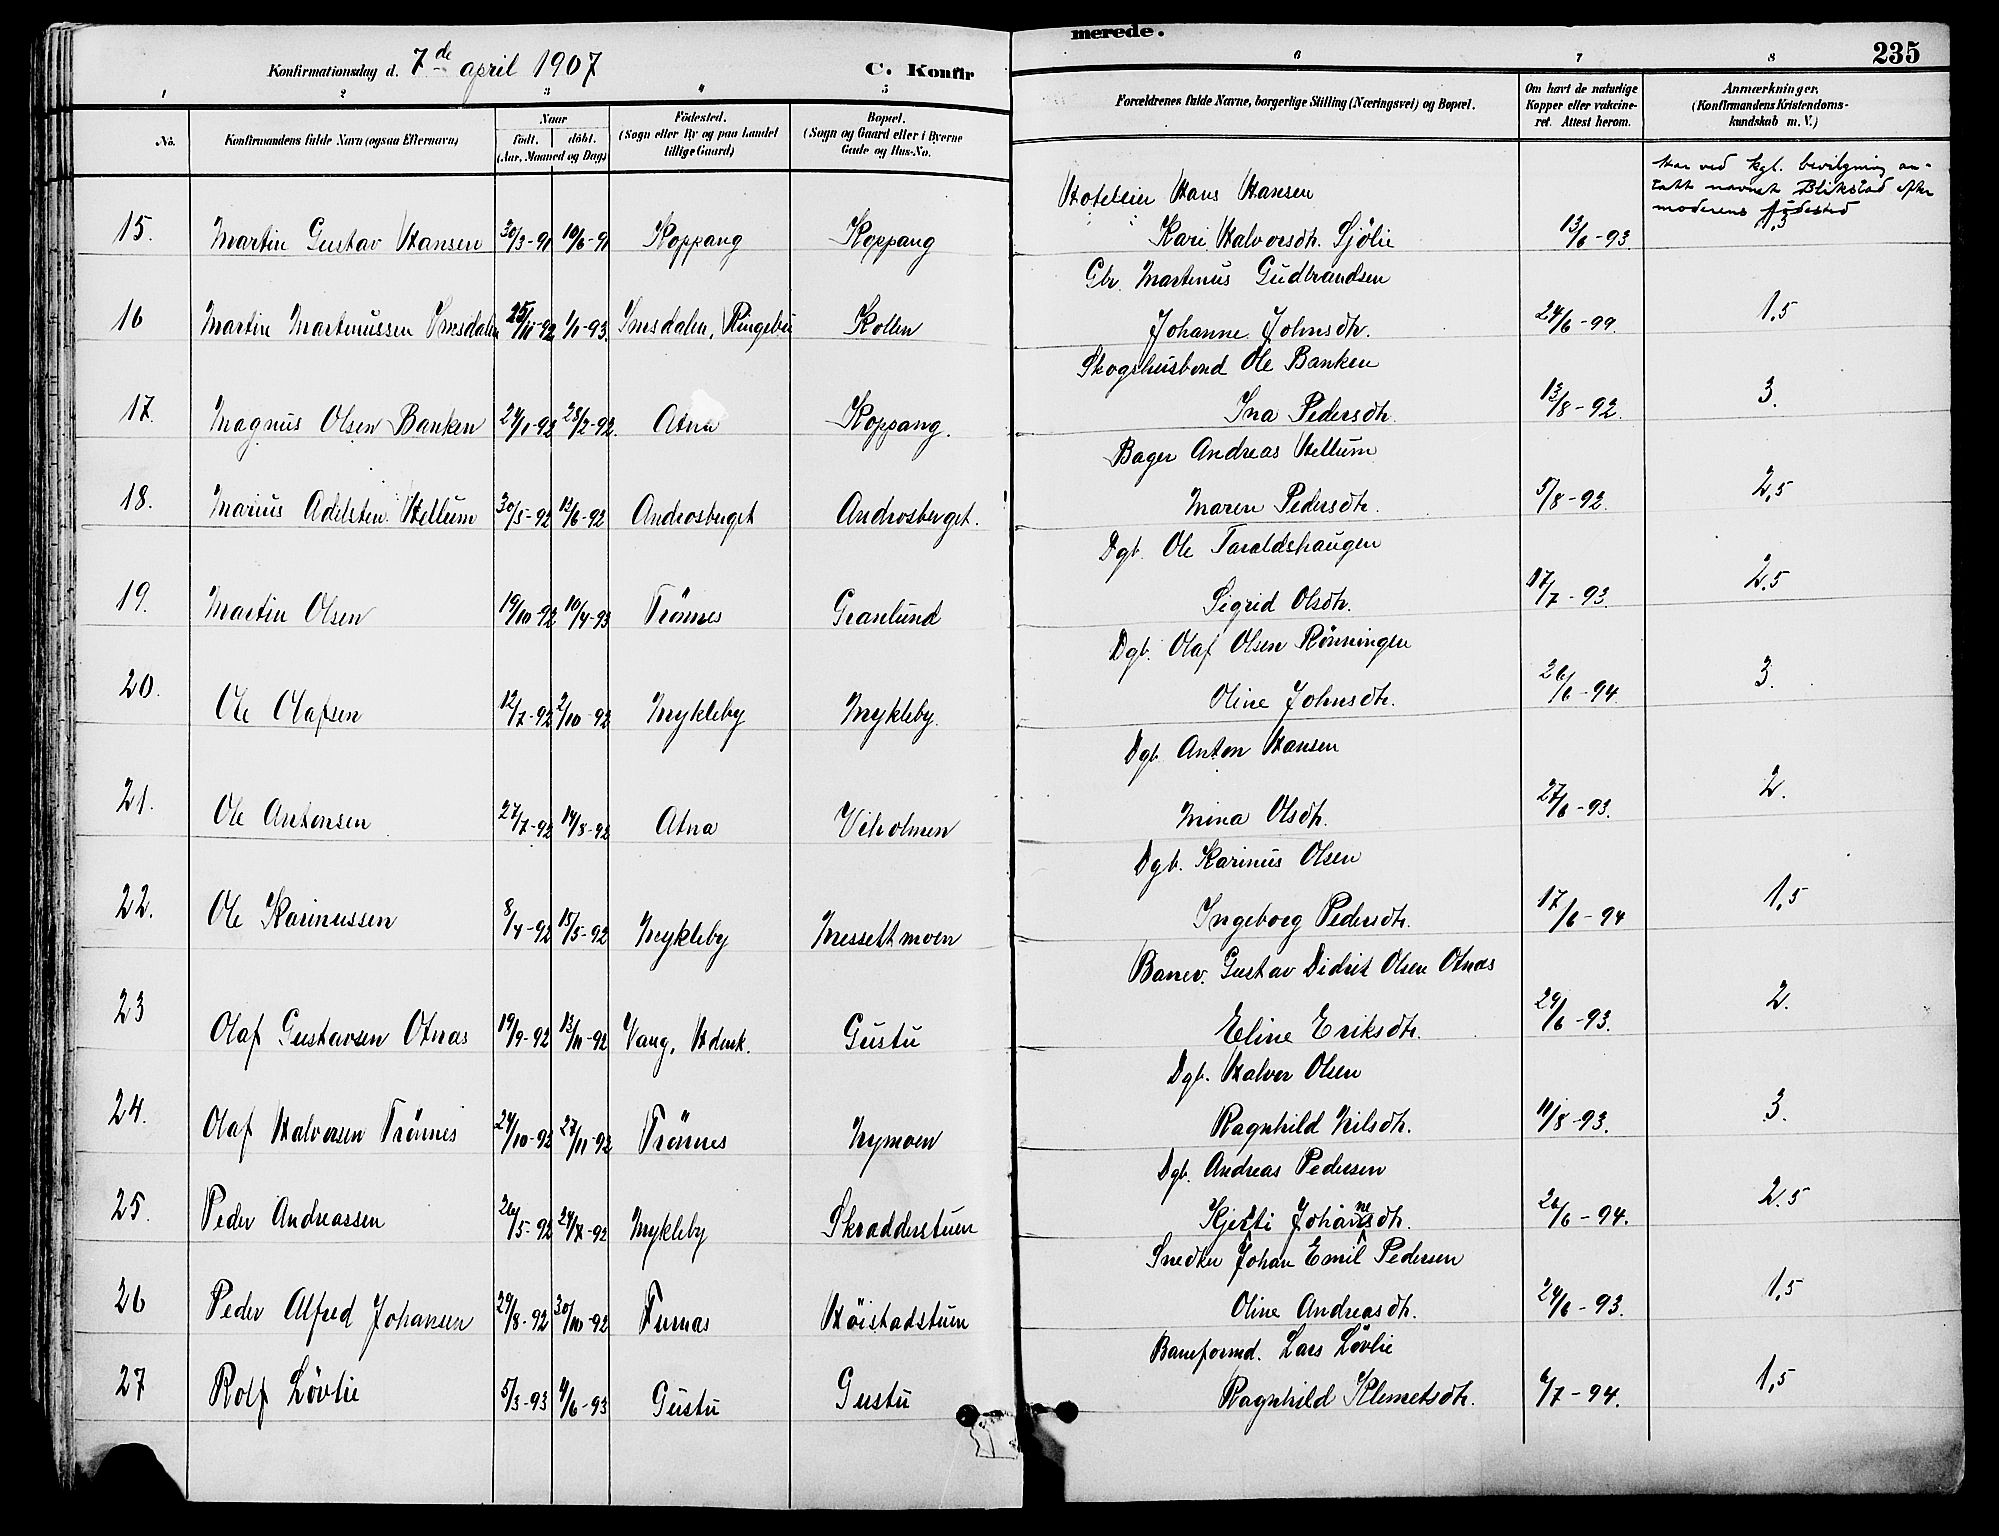 Konfirmationsdag d. 7de april 1907
C. Konfir
merede.
235
1 2 3 5 6 7 8
No.
Konfirmandens fulde Navn (ogsaa Efternavn)
Naar
födt. döbt.
(Aar, Maaned og Dag)
Födested.
(Sogn eller By og paa Landet tillige Gaard)
Bopæl.
(Sogn og Gaard eller i Byerne Gade og Hus-No.
Forældrenes fulde Navne, borgerlige Stilling (Næringsvei) og Bopæl.
Om havt de naturlige Kopper eller vakcineret. Attest herom.
Anmærkninger,
(Konfirmandens Kristendomskundskab m. V.)
Har ved kgl. bevilgning an-
tatt navnet Blikstad efter
moderens födested
Hoteleier Hans Hansen
15. Martin Gustav Hansen 30/3-91 10/6-91 Koppang Koppang Kari Halvorsdtr. Sjölie 13/6-93. 1,3
Gbr. Martinus Gudbrandsen
16 Martin Martinussen Imsdalen 25/11-92 1/1-93. Imsdalen, Ringebu Kollen Johanne Johnsdtr. 24/6-99. 1,5
Skogshusbond Ole Banken
17. Magnus Olsen Banken 24/1-92 28/2-92. Atna Koppang. Ina Pedersdtr. 13/8-92. 3.
Bager Andreas Hellum
18. Marius Adelsten Hellum 30/5-92 12/6-92 Androsberget Androsberget. Maren Pedersdtr. 5/8-92. 2,5
Dgb. Ole Taraldshaugen
19. Martin Olsen 19/10-92 10/4-93 Trönnes Granlund Sigrid Olsdtr. 17/7-93. 2,5
Dgb. Olaf Olsen Rönningen
20. Ole Olafsen 12/7-92 2/10-92 Mykleby Mykleby. Oline Johnsdtr. 26/6-94. 3.
Dgb. Anton Hansen
21. Ole Antonsen 27/7-92 14/8-92 Atna Viholmen Mina Olsdtr. 27/6-93. 2.
Dgb. Karinus Olsen
22. Ole Karinussen 8/4-92 15/5-92 Mykleby Messeltmoen Ingeborg Pedersdtr. 17/6-94 1,5
Banev. Gustav Didrik Olsen Otnæs
23 Olaf Gustavsen Otnæs 19/9-92 13/11-92 Vang, Hdmk. Gustu Eline Eriksdtr. 29/6-93. 2.
Dgb. Halvor Olsen
24. Olaf Halvorsen Trönnes 24/10-92 27/11-92 Trönnes Nymoen Ragnhild Nilsdtr. 11/8-93. 3.
Dgb. Andreas Pedersen
25. Peder Andreassen 26/5-92 24/7-92 Mykleby Skrædderstuen Kjersti Johannesdtr. 26/6-94. 2.5
Snedker Johan Emil Pedersen
26 Peder Alfred Johansen 29/8-92 30/10-92 Furnæs Höistadstuen Oline Andreasdtr. 24/6-93. 1,5
Baneformd. Lars Lövlie
27 Rolf Lövlie 5/3-93 4/6-93 Gustu Gustu Ragnhild Klemetsdtr. 6/7-94. 1,5